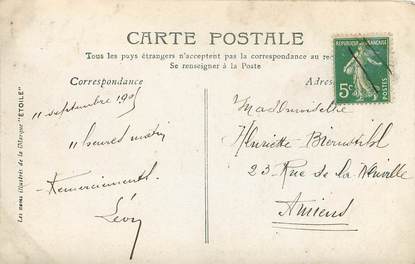 CARTE POSTALE
Tous les pays étrangers n'acceptent pas la correspondance au rec
Se renseigner à la Poste
Correspondance
Adres
REPUBLIQUE FRANÇAISE
5c
POSTES
11 septembre
11 heures matin
Remerciements
Lévy
Mademoiselle
Henriette
23 Rue de la Neuville
Amiens
Les noms illustrés de la Marque "ÉTOILE"